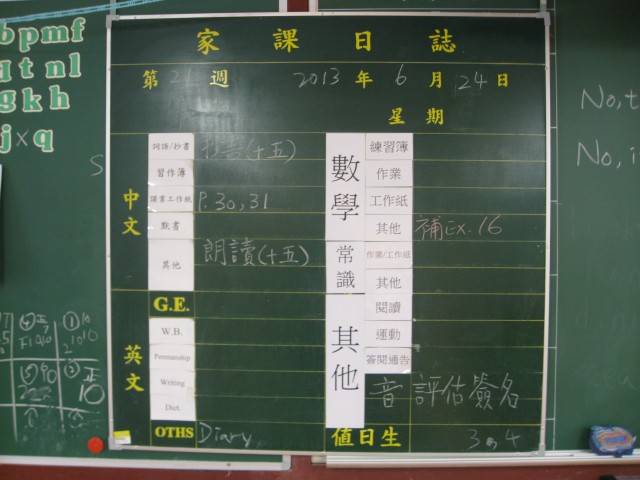 家課日誌
第 21 週 2013 年 6 月 24 日
星期
中文
詞語/抄書 报告(十五)
習作簿
課業工作紙 P.30,31
默書
其他 朗讀(十五)
英文
G.E.
W.B.
Penmanship
Writing
Dict.
OTHS Diary
數學
練習簿
作業
工作紙
其他 補Ex.16
常識
作業/工作紙
其他
其他
閱讀
運動
簽閱通告
音 評估簽名
值日生 3,4
bpmf
qtnl
gkh
jxq
S
No,t
No,i